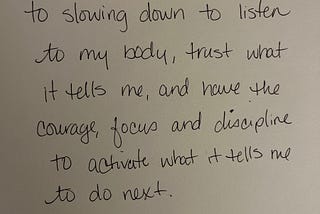 to slowing down to listen
to my body, trust what
it tells me, and have the
courage, focus and discipline
to activate what it tells me
to do next.